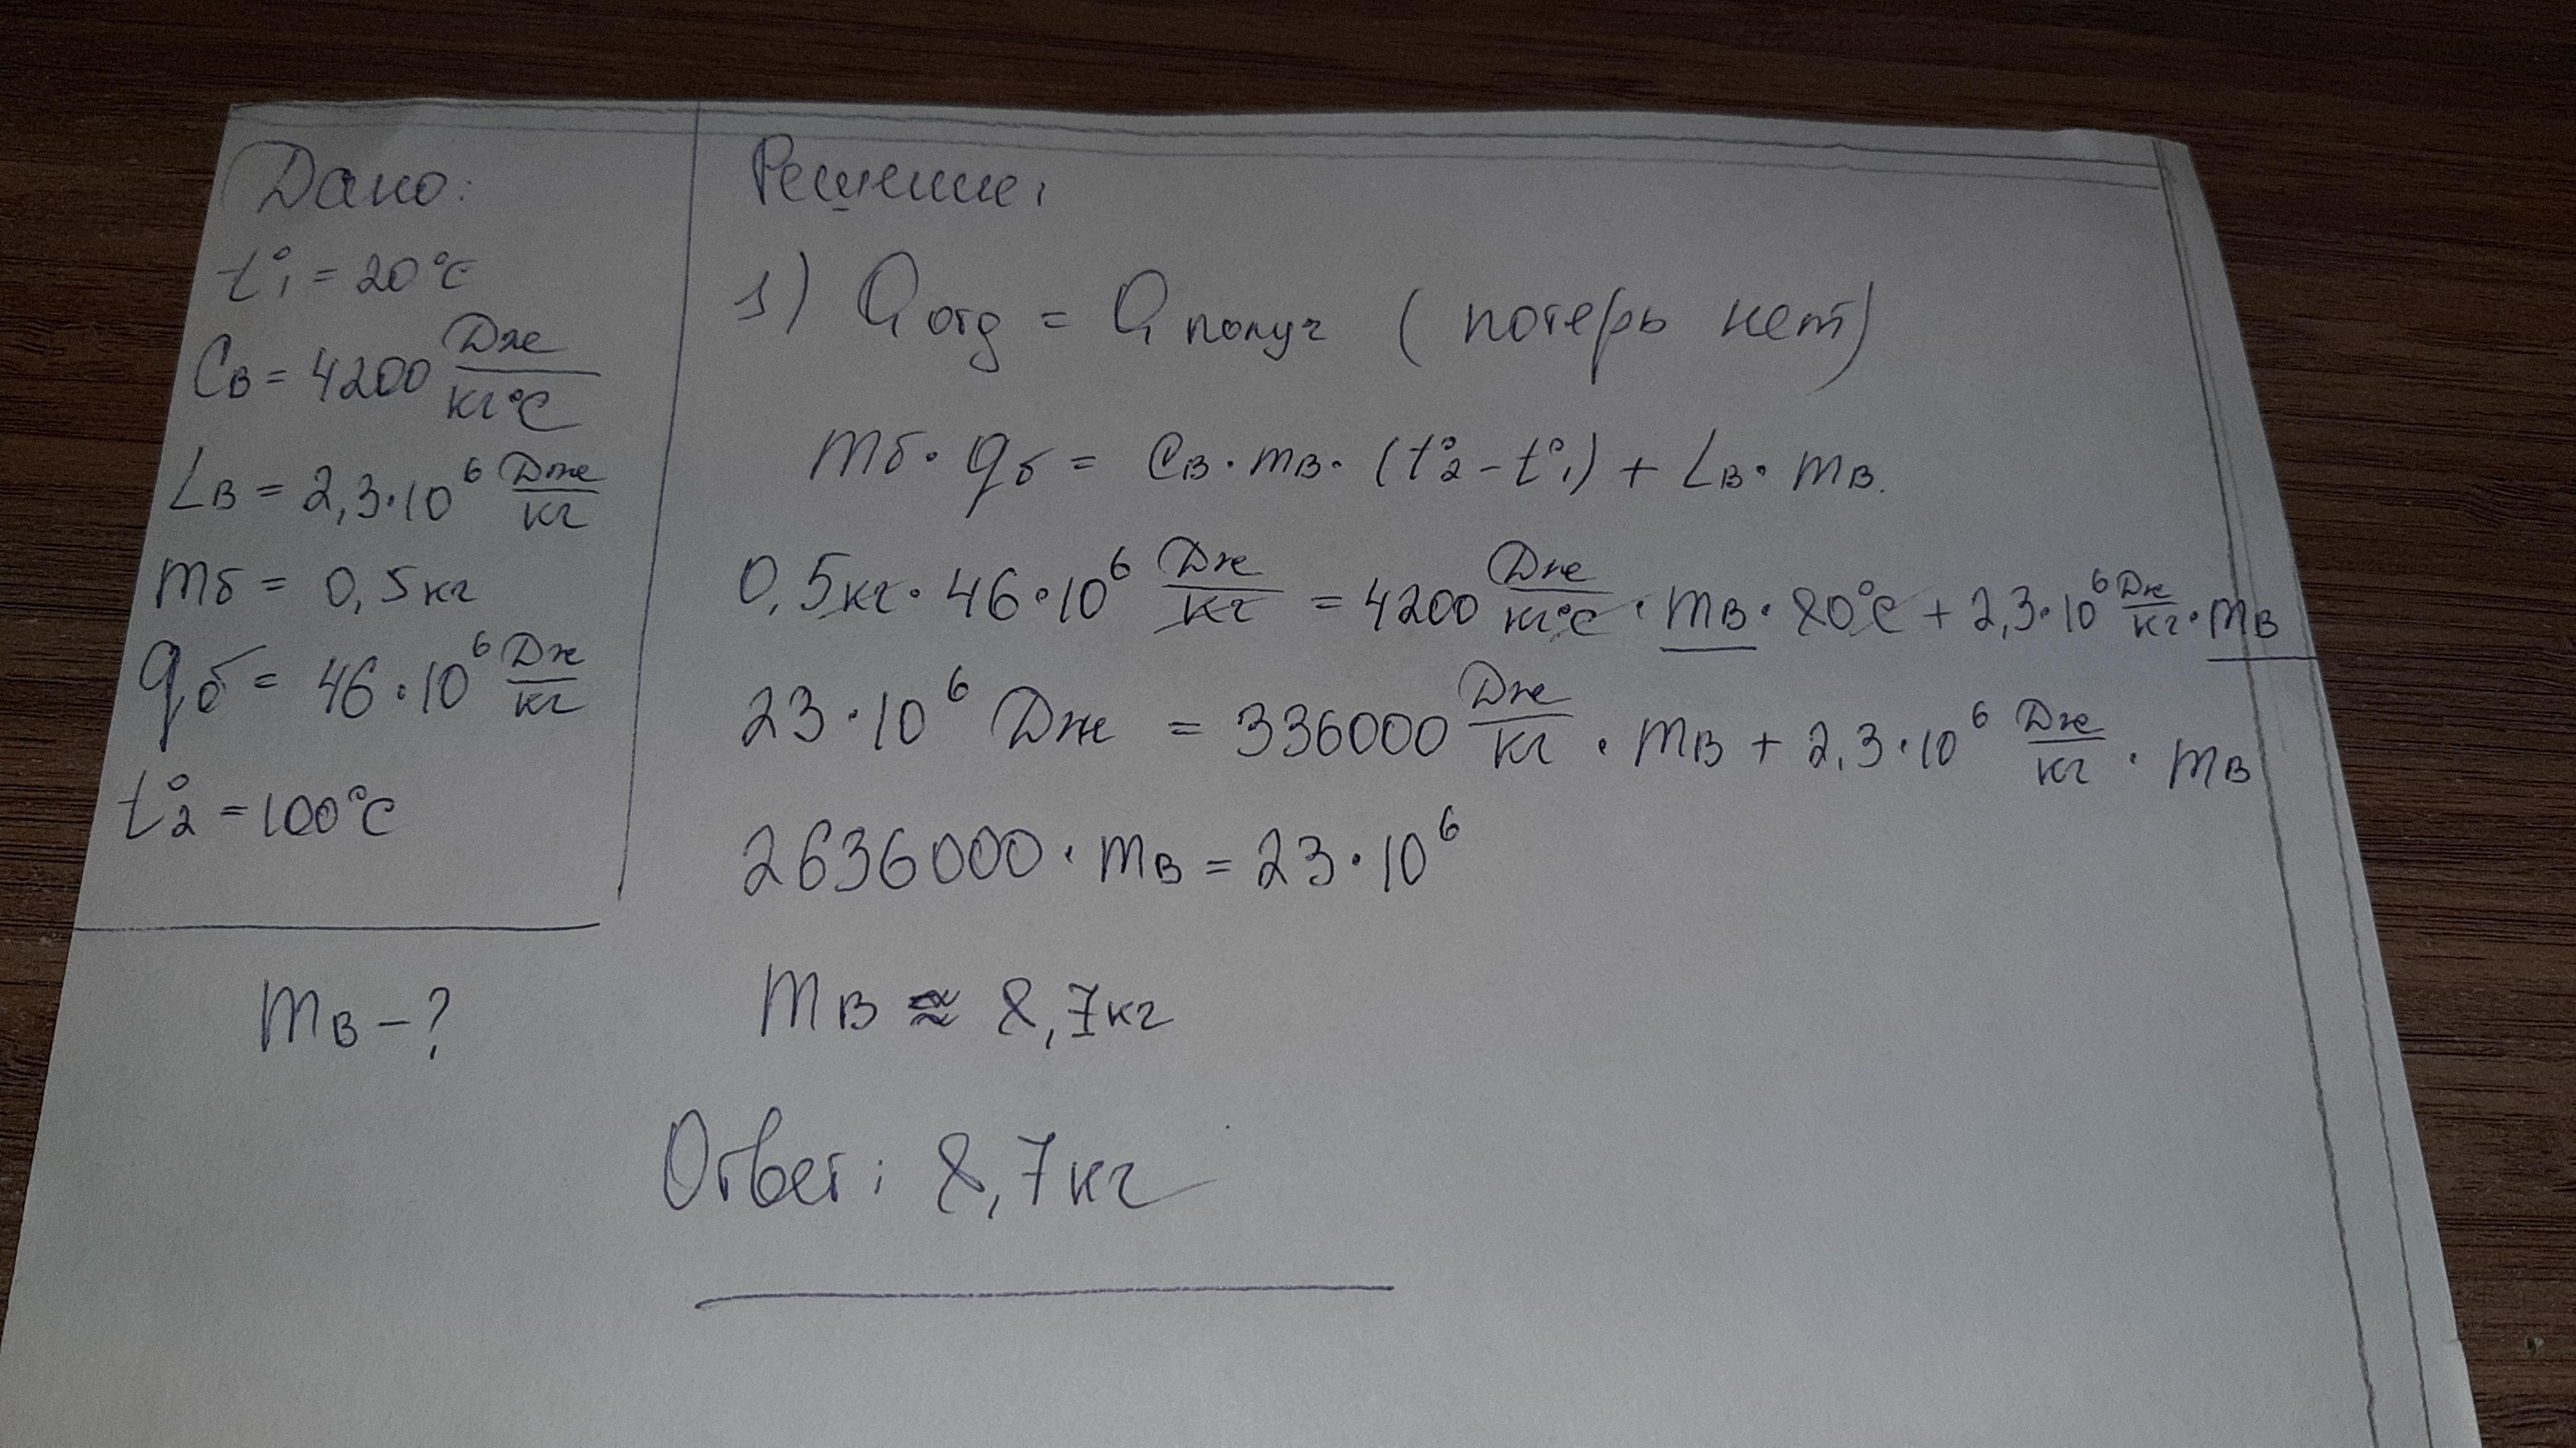 Дано:
t°₁ = 20°C
Cв = 4200 Дж/кг°C
Lв = 2,3·10⁶ Дж/кг
mб = 0,5 кг
qб = 46·10⁶ Дж/кг
t°₂ = 100°C
mв – ?
Решение:
1) Qотд = Qполуч (потерь нет)
mб · qб = cв · mв · (t°₂ – t°₁) + Lв · mв.
0,5кг · 46·10⁶ Дж/кг = 4200 Дж/кг°C · mв · 80°C + 2,3·10⁶ Дж/кг · mв
23·10⁶ Дж = 336000 Дж/кг · mв + 2,3·10⁶ Дж/кг · mв
2636000 · mв = 23·10⁶
mв ≈ 8,7кг
Ответ: 8,7кг